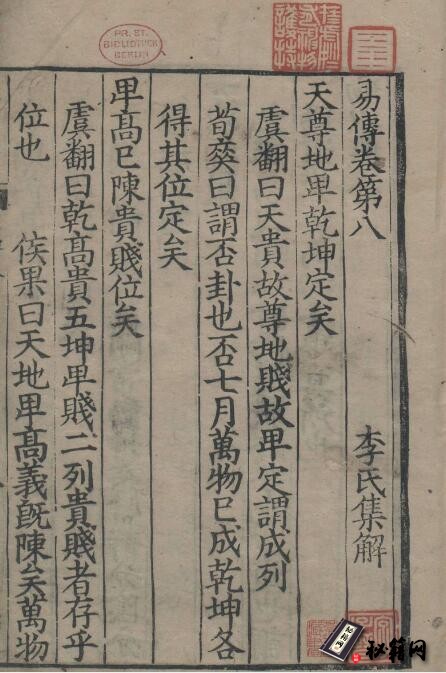 易傳卷第八 李氏集解
天尊地卑乾坤定矣
虞翻曰天貴故尊地賤故卑定謂成列
荀爽曰謂否卦也否七月萬物已成乾坤各
得其位定矣
卑高已陳貴賤位矣
虞翻曰乾高貴五坤卑賤二列貴賤者存乎
位也 侯果曰天地卑高義旣陳矣萬物
PR. ST. BIBLIOTHEK BERLIN
秘籍网
秘籍网